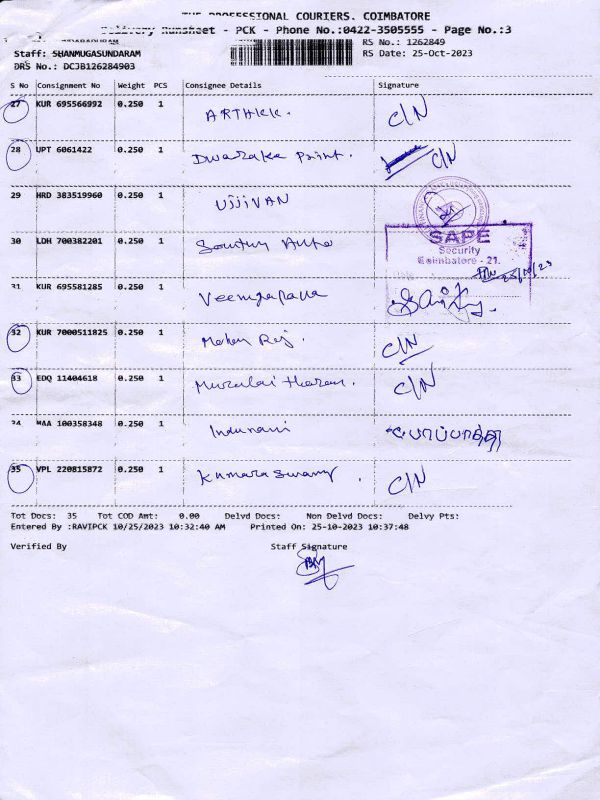 THE PROFESSIONAL COURIERS. COIMBATORE
Delivery Runsheet - PCK - Phone No.:0422-3505555 - Page No.:3
RS No.: 1262849
Staff: SHANMUGASUNDARAM RS Date: 25-Oct-2023
DRS No.: DCJB126284903
S No Consignment No Weight PCS Consignee Details Signature
27 KUR 695566992 0.250 1 ARTHKK. C/N
28 UPT 6061422 0.250 1 Dwaraka Print. C/N
29 HRD 383519960 0.250 1 UJJIVAN
SAPE
Security
Coimbatore - 21.
30 LDH 700382201 0.250 1 Auto
25/10/23
31 KUR 695581285 0.250 1
32 KUR 7000511825 0.250 1 Mohan Raj. C/N
33 EDQ 11404618 0.250 1 C/N
34 MAA 100358348 0.250 1 Indurani
35 VPL 220815872 0.250 1 Kumaraswamy . C/N
Tot Docs: 35 Tot COD Amt: 0.00 Delvd Docs: Non Delvd Docs: Delvy Pts:
Entered By :RAVIPCK 10/25/2023 10:32:40 AM Printed On: 25-10-2023 10:37:48
Verified By Staff Signature